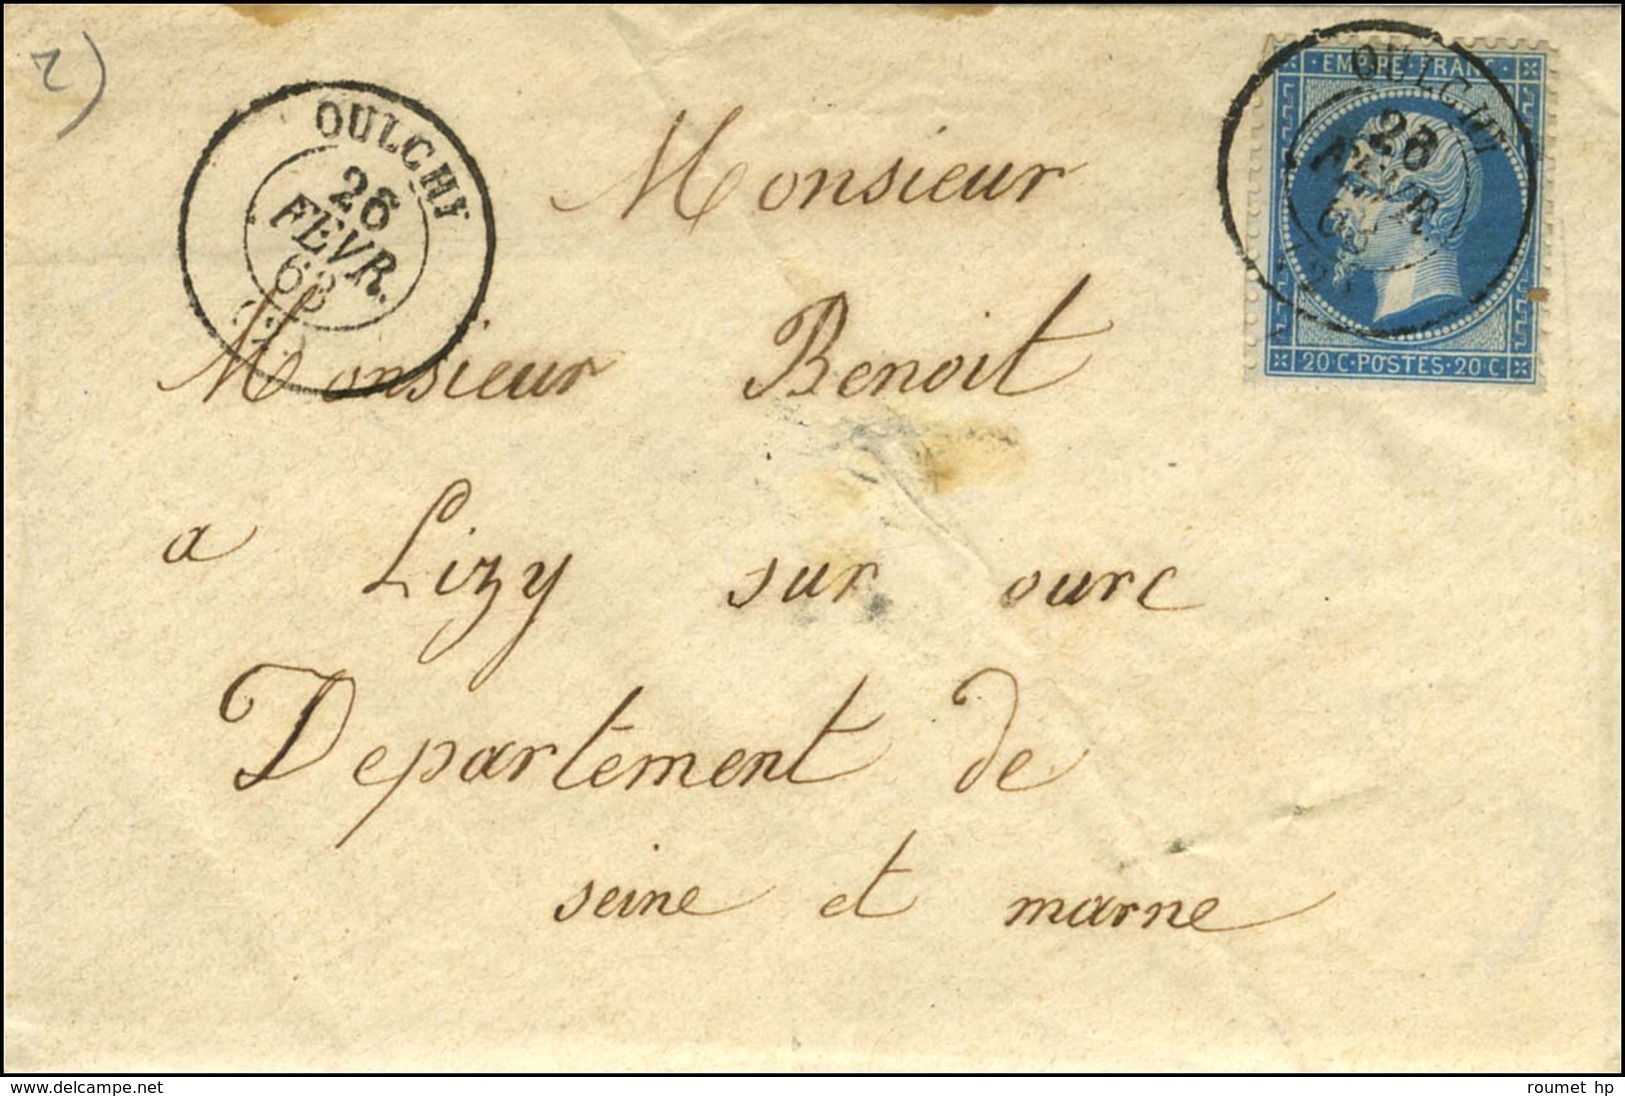 2)
OULCHY
26
FEVR.
63
(2)
OULCHY
26
FEVR.
63
EMPIRE FRANC
20·C·POSTES·20·C
Monsieur
Monsieur Benoit
a Lizy sur ourc
Departement de
seine et marne
www.delcampe.net
roumet hp